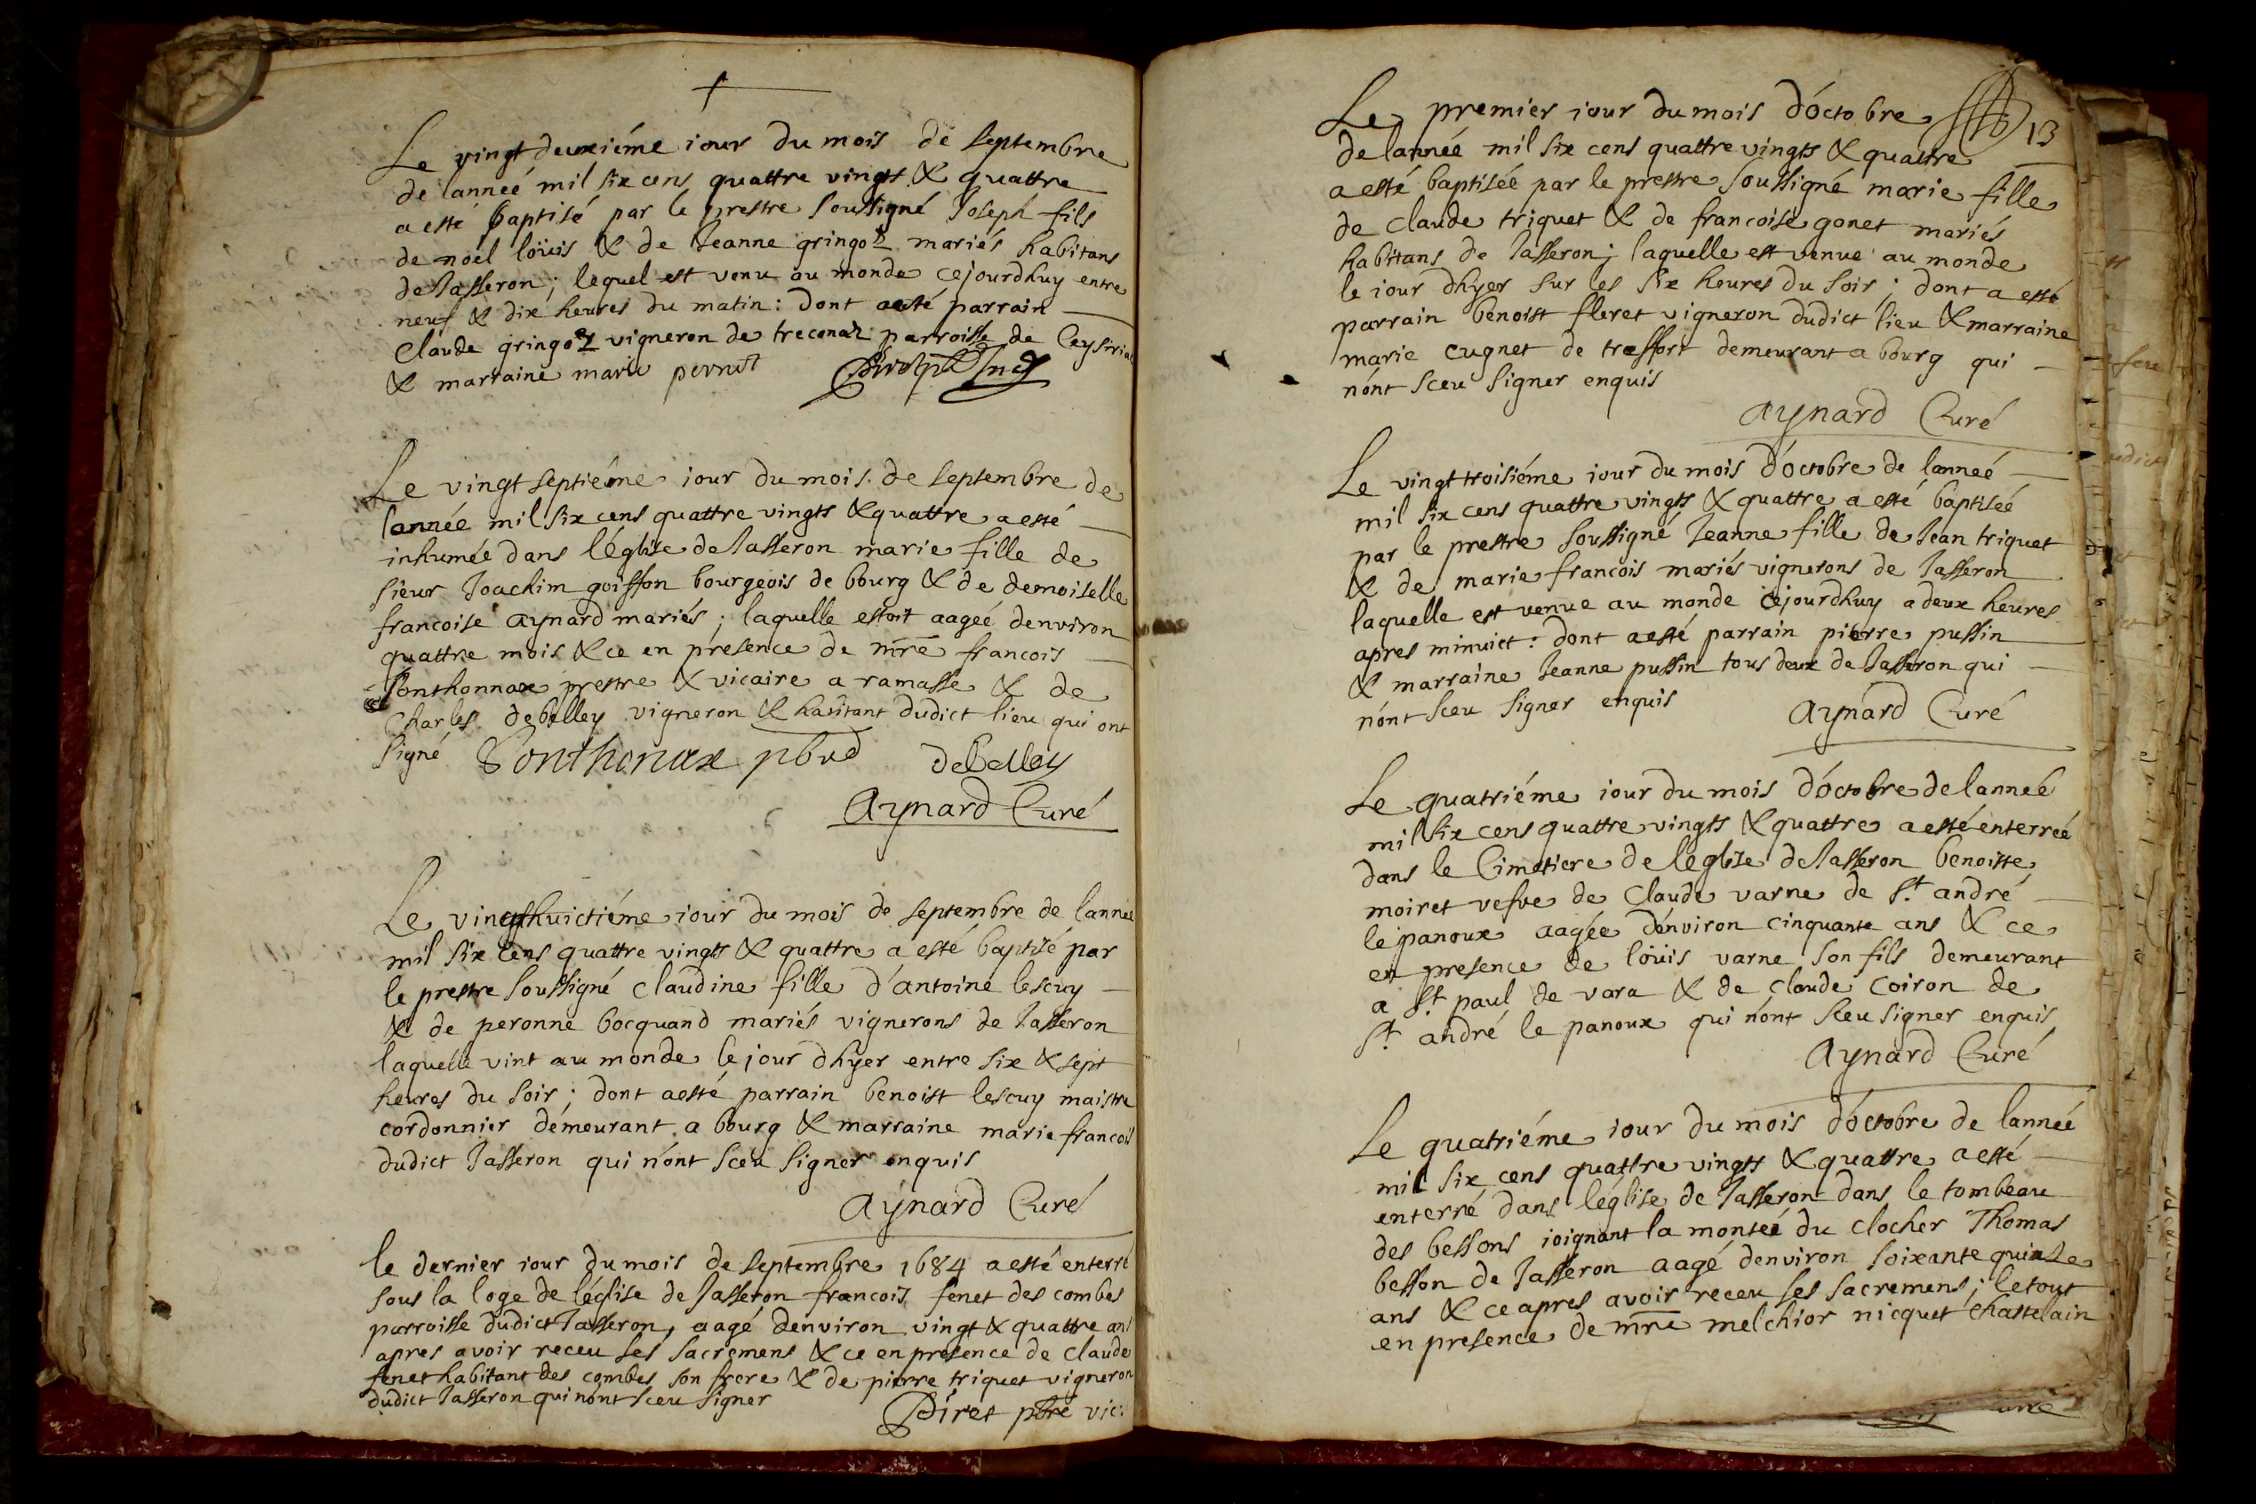 Le vingtdeuxiéme iour du mois de septembre
de lanneé mil six cens quattre vingts & quattre
a esté baptisé par le prestre soussigné Joseph fils
de noel loüis & de Jeanne gringoz mariés habitans
de Jasseron; lequel est venu au monde cejourdhuy entre
neuf & dix heures du matin: dont aesté parrain
Claude gringoz vigneron de treconaz parroisse de Ceysiria
& marraine marie
Le vingt septiéme iour du mois de septembre de
lannée mil six cens quattre vingts & quattre a esté
inhumée dans léglise de Jasseron marie fille de
sieur Joachim goiffon bourgeois de bourg & de demoiselle
francoise aynard mariés; laquelle estoit aageé denviron
quattre mois & ce en presence de mre francois
Sonthonnax prestre & vicaire a ramasse & de
Charles debelley vigneron & habitant dudict lieu qui ont
signé Sonthonax pbre debelley
Aynard Curé
Le vingthuictiéme iour du mois de septembre de lannée
mil six cens quattre vingts & quattre a esté baptisé par
le prestre soussigné claudine fille d'antoine lescuy
& de peronne bocquand mariés vignerons de Jasseron
laquelle vint au monde le jour dhyer entre six & sept
heures du soir; dont aesté parrain benoist lescuy maistre
cordonnier demeurant a bourg & marraine marie francois
dudict Jasseron qui nónt sceu signer enquis
Aynard Curé
le dernier iour du mois de septembre 1684 a esté enterré
sous la loge de léglise de Jasseron francois fenet des combes
parroisse dudict Jasseron, aagé denviron vingt & quattre ans
apres avoir receu ses sacremens & ce en presence de claude
fenet habitant des combes son frere & de pierre triquet vigneron
dudict Jasseron qui nónt sceu signer
Piret pbre vic:
13
Le premier iour du mois dóctobre
de lannéé mil six cens quattre vingts & quattre
a esté baptiséé par le prestre soussigné marie fille
de claude triquet & de francoise gonet mariés
habitans de Jasseron; laquelle est venue au monde
le iour dhyer sur les six heures du soir; dont a esté
parrain benoist fleret vigneron dudict lieu & marraine
marie cugnet de treffort demeurant a bourg qui
nónt sceu signer enquis
Aynard Curé
Le vingttroisiéme iour du mois dóctobre de lanneé
mil six cens quattre vingts & quattre a esté baptiseé
par le prestre soussigné Jeanne fille de Jean triquet
& de marie francois mariés vignerons de Jasseron
laquelle est venue au monde cejourdhuy a deux heures
apres minuict: dont aesté parrain pierre pussin
& marraine Jeanne pussin tous deux de Jasseron qui
nónt sceu signer enquis
Aynard Curé
Le quatriéme iour du mois dóctobre de lanneé
mil six cens quattre vingts & quattre a esté enterreé
dans le Cimetiere de léglize de Jasseron benoiste
moiret vefve de Claude varne de st. andré
le panoux aagée dénviron cinquante ans & ce
en presence de loüis varne son fils demeurant
a st. paul de vara & de claude Coiron de
st. andré le panoux qui nónt sceu signer enquis
Aynard Curé
Le quatriéme iour du mois dóctobre de lanneé
mil six cens quattre vingts & quattre a esté
enterré dans léglise de Jasseron dans le tombeau
des bessons ioignant la monteé du clocher Thomas
besson de Jasseron aagé denviron soixante quinze
ans & ce apres avoir receu ses sacremens; le tout
en presence de mre melchior nicquet chastelain